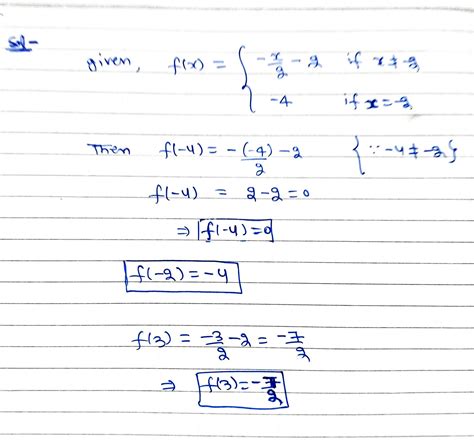 Sol-
given, f(x) = { -x/2 - 2 if x ≠ -2
-4 if x = -2
Then f(-4) = -(-4)/2 - 2 {∵ -4 ≠ -2}
f(-4) = 2-2=0
⇒ f(-4)=0
f(-2) = -4
f(3) = -3/2 - 2 = -7/2
⇒ f(3) = -7/2